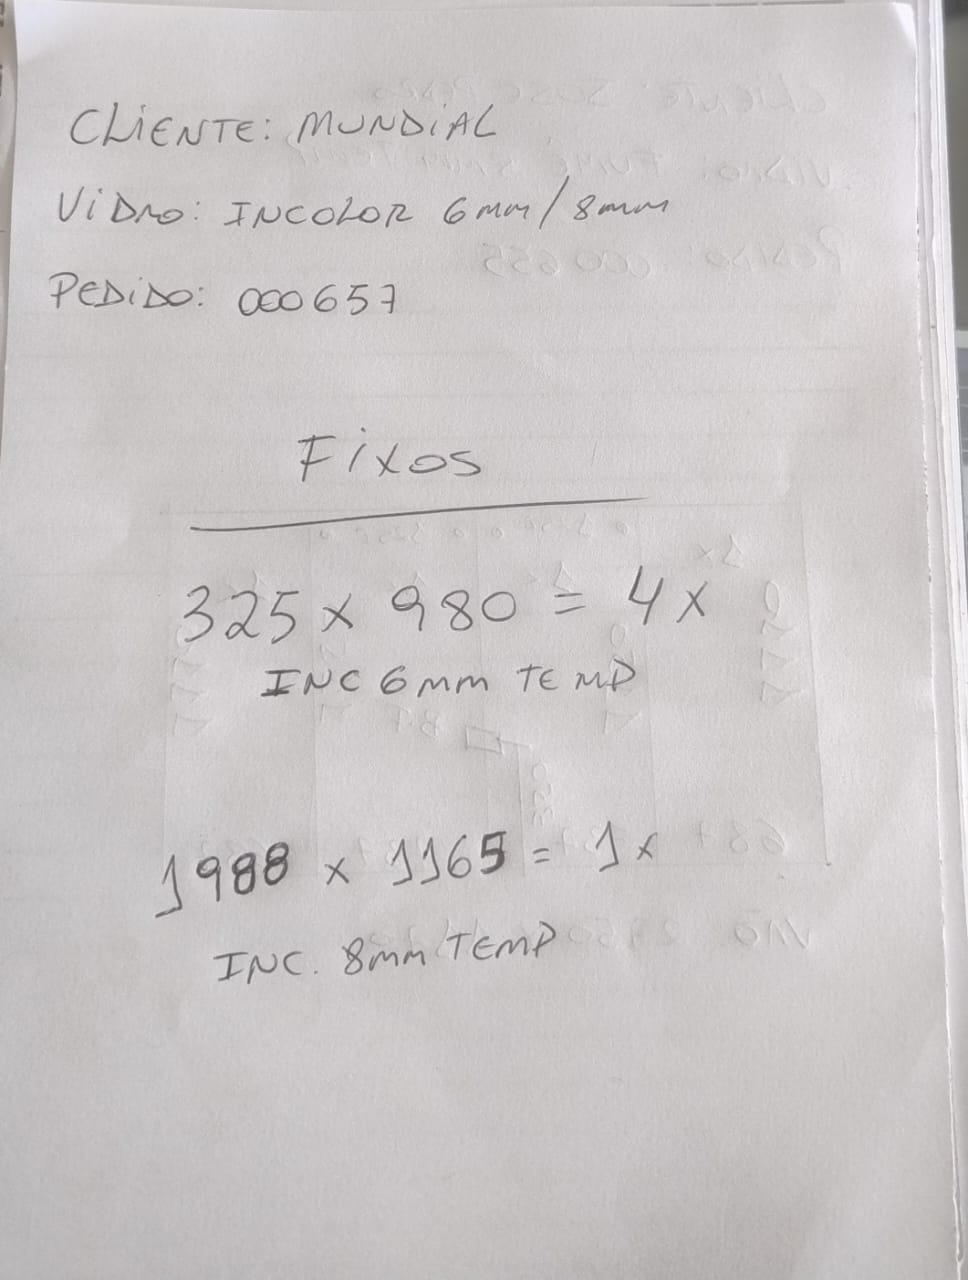 CLIENTE: MUNDIAL
VIDRO: INCOLOR 6mm/8mm
PEDIDO: 000657
Fixos
325 x 980 = 4x
INC 6mm TEMP
1988 x 1165 = 1x
INC. 8mm TEMP